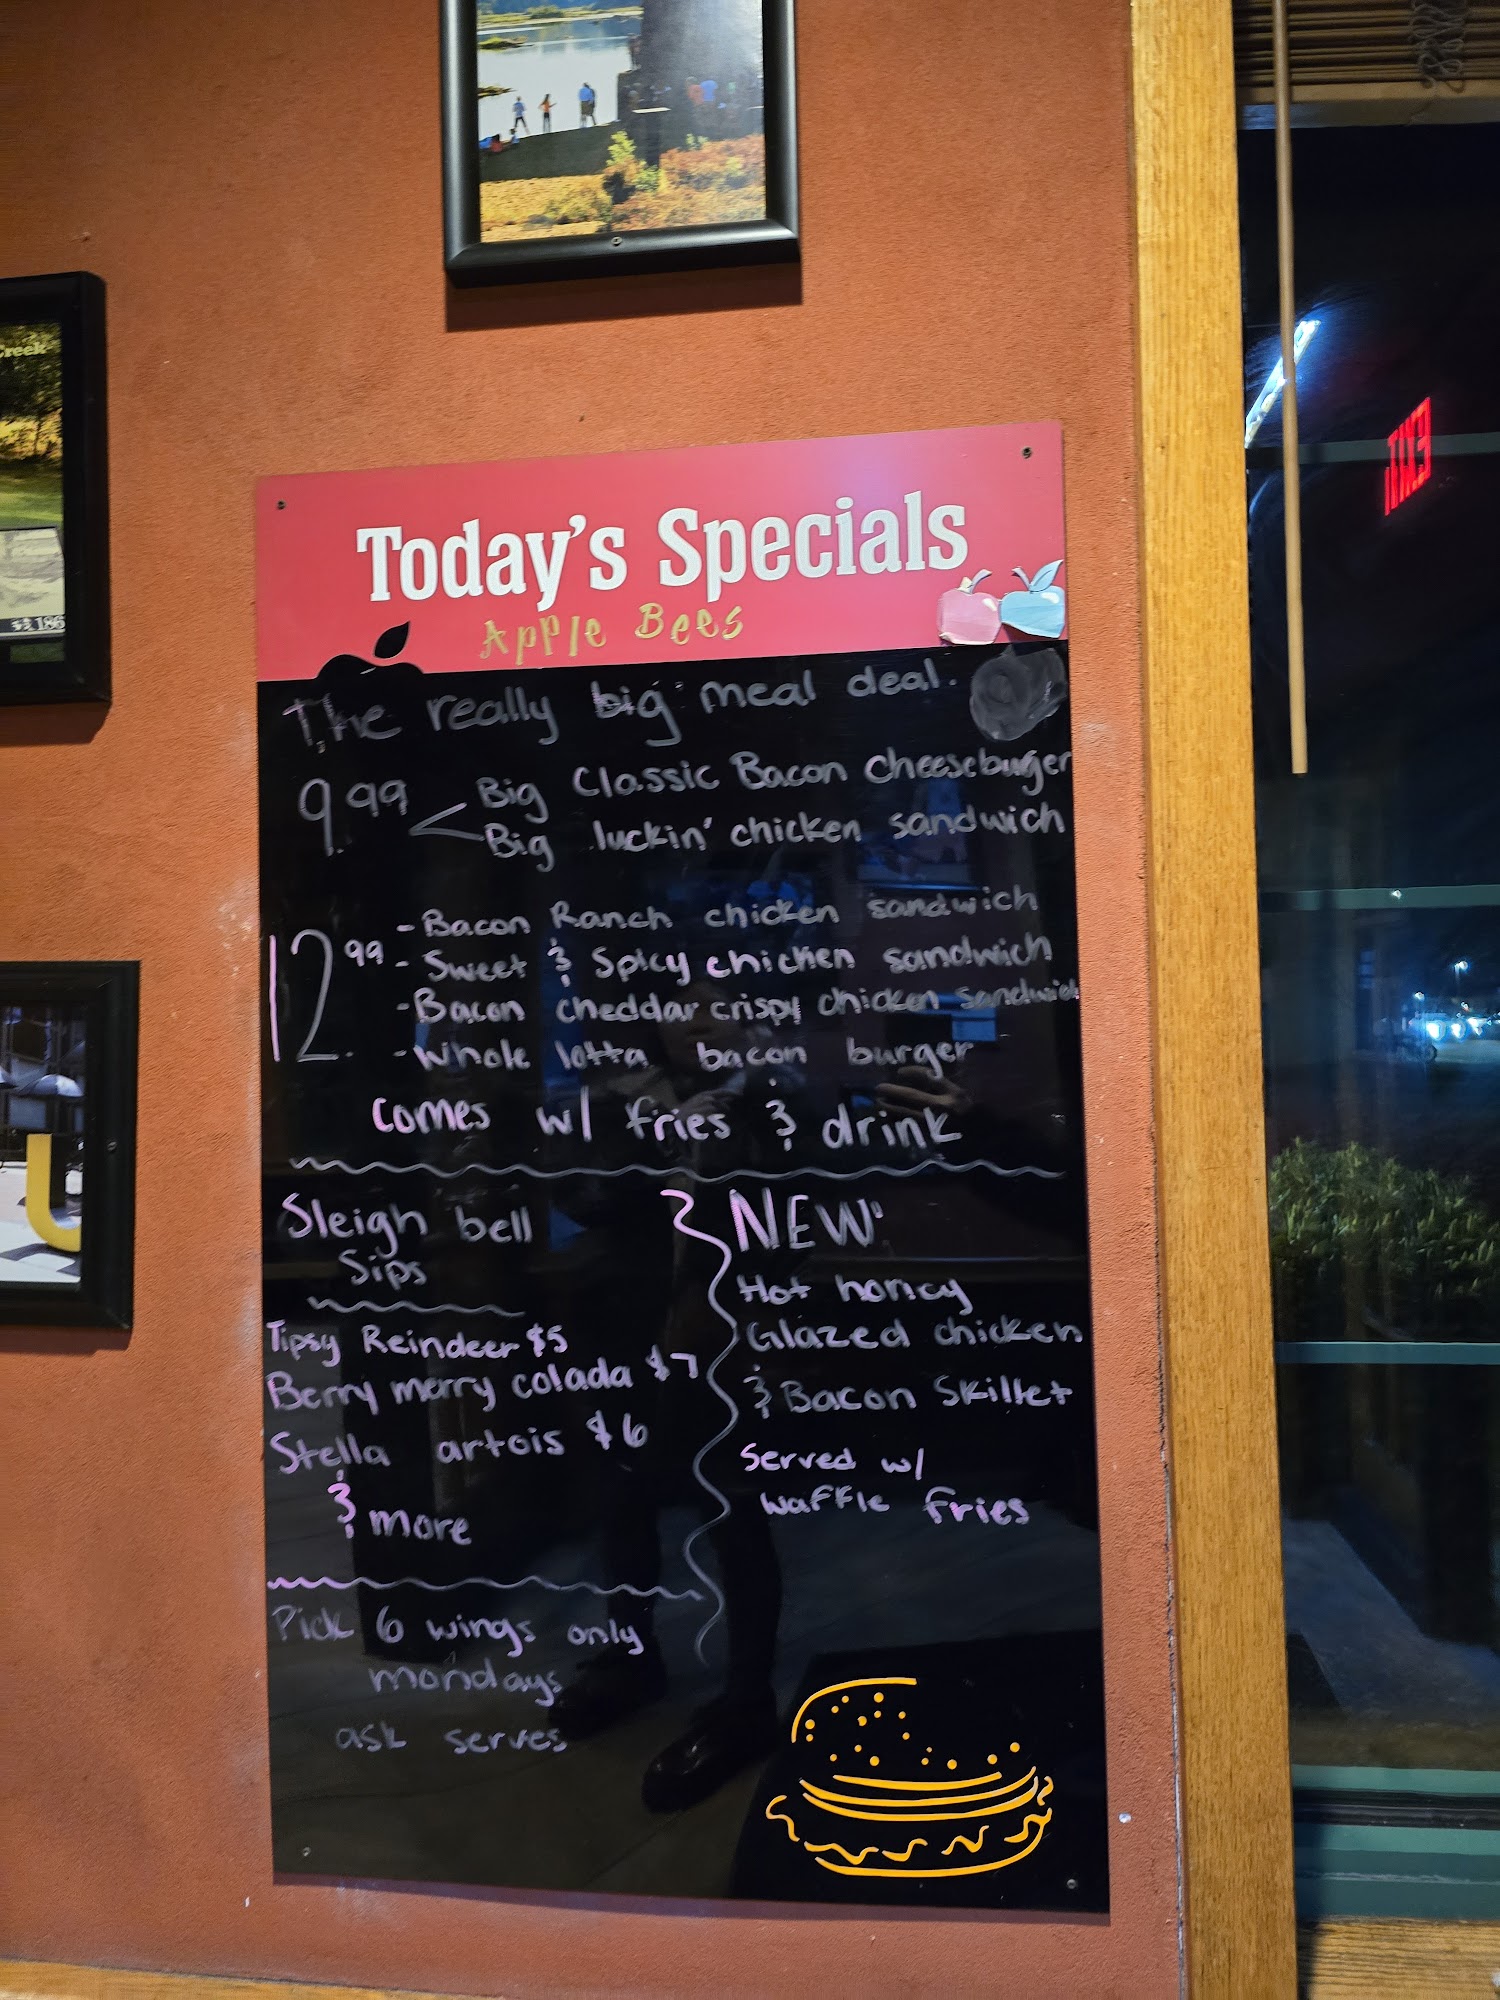 Creek
186
Today's Specials
Apple Bees
The really big meal deal.
9.99
Big Classic Bacon Cheeseburger
Big luckin' chicken sandwich
12.99
- Bacon Ranch chicken sandwich
- Sweet & Spicy chicken sandwich
- Bacon cheddar crispy chicken sandwich
- Whole lotta bacon burger
Comes w/ fries & drink
Sleigh bell
Sips
Tipsy Reindeer $5
Berry merry colada $7
Stella artois $6
& more
Pick 6 wings only
mondays
ask serves
NEW:
Hot honey
Glazed chicken
& Bacon Skillet
Served w/
waffle fries
EXIT